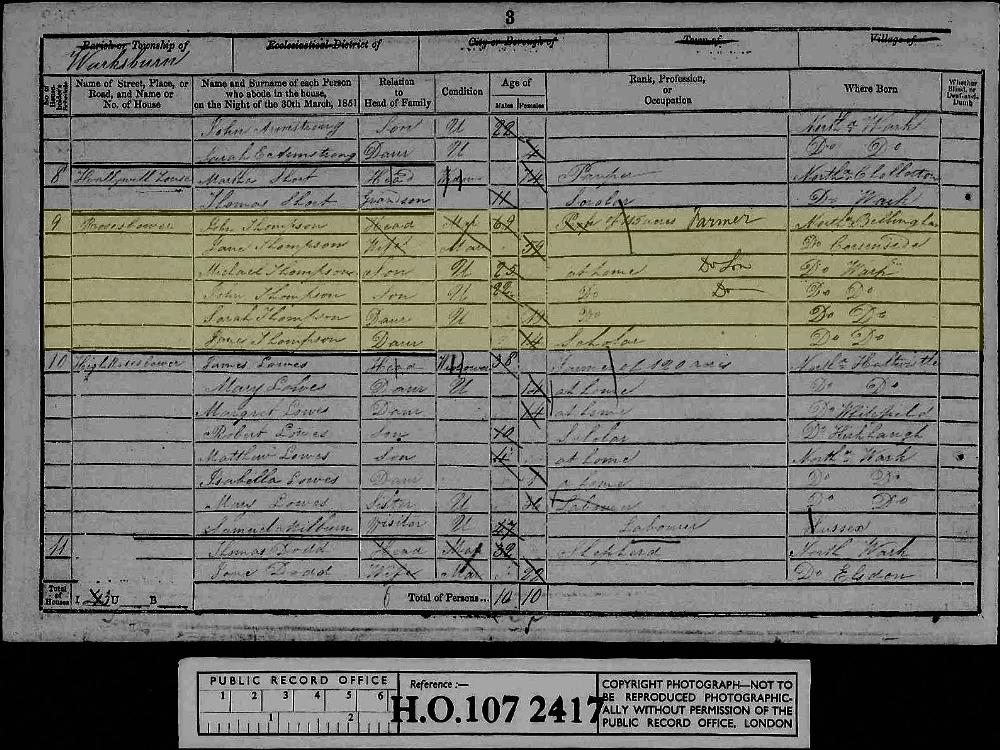 3
Parish or Township of
Ecclesiastical District of
City or Borough of
Town of
Village of
Warksburn
Name of Street, Place, or Road, and Name or No. of House
Name and Surname of each Person who abode in the house, on the Night of the 30th March, 1851
Relation to Head of Family
Condition
Age of
Males
Females
Rank, Profession, or Occupation
Where Born
Whether Blind, or Deaf-and-Dumb
John Armstrong Son U 22 North Wark
Sarah Armstrong Daur U 4 Do Do
8 House Martha Short Head Pauper North Chollerton
Thomas Short Grandson 11 Scholar Do Wark
9 Rosesbower John Thompson Head Mar 69 of 45 acres Farmer North Bellingham
Jane Thompson Wife Mar 59 Do
Michael Thompson Son U 25 at home Do Son Do Wark
John Thompson Son U 22 Do Do Do Do
Sarah Thompson Daur U Do Do Do
Jane Thompson Daur 14 Scholar Do Do
10 High Rosesbower James Lowes Head Widower 38 Farmer of 120 acres North Haltwhistle
Mary Lowes Daur U at home Do Do
Margret Lowes Daur 14 at home Do Whitfield
Robert Lowes Son 10 Scholar Do Kirkhaugh
Matthew Lowes Son 4 at home North Wark
Isabella Lowes Daur 1 at home Do Do
Mary Lowes Sister U 36 Labourer Do Do
Samuel Milburn Visitor U 27 Labourer Sussex
11 Thomas Dodd Head Mar 32 Shepherd North Wark
Jane Dodd Wife Mar 29 Do Elsdon
Total of Houses I U B Total of Persons... 10 10
PUBLIC RECORD OFFICE
1 2 3 4 5 6
1 2
Reference :—
H.O.107 2417
COPYRIGHT PHOTOGRAPH—NOT TO
BE REPRODUCED PHOTOGRAPHIC-
ALLY WITHOUT PERMISSION OF THE
PUBLIC RECORD OFFICE, LONDON